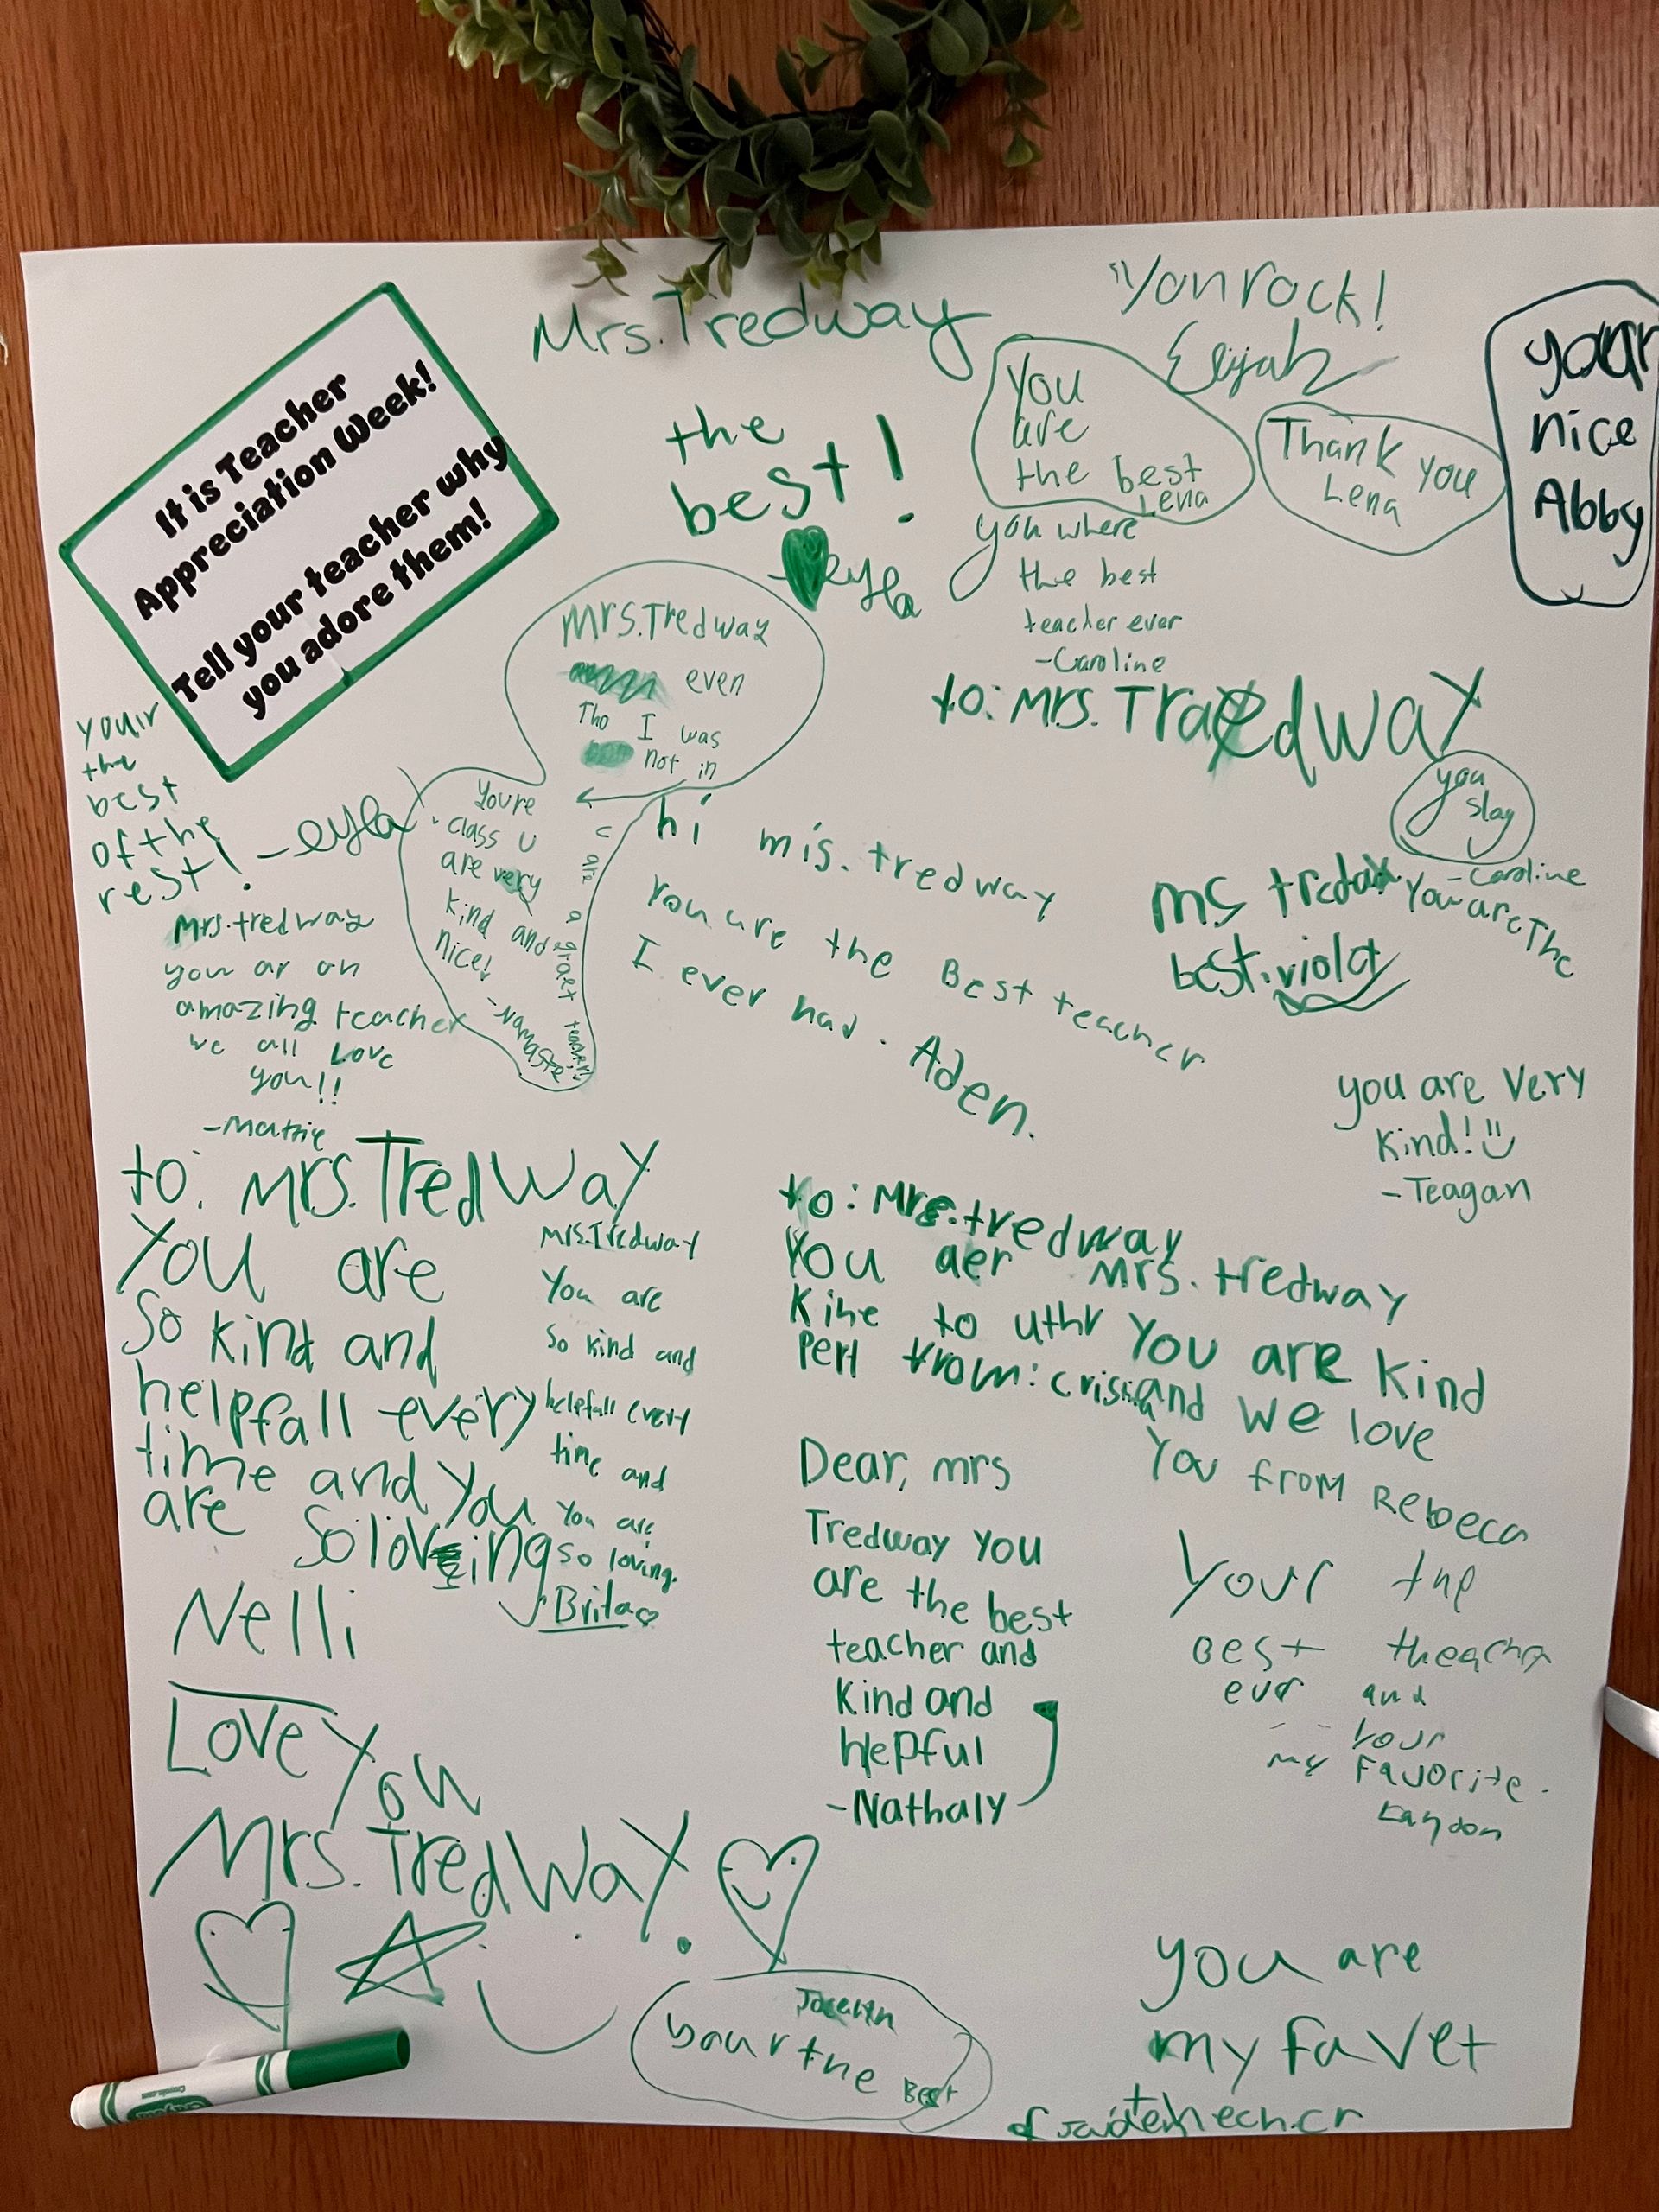 It is Teacher
Appreciation Week!
Tell your teacher why
you adore them!
Mrs. Tredway
the
best!
eyla
"You rock!
Elijah
You
are
the best
Lena
Thank you
Lena
your
nice
Abby
you where
the best
teacher ever
-Caroline
to: Mrs. Traedway
you
slay
-Caroline
youir
the
best
of the
rest! -eyla
Mrs. Tredway
even
Tho I was
not in
Youre
class U
are very
kind and
nice!
-Namaste
U are a graet teacher
hi mis. tredway
You are the Best teacher
I ever had. Aden.
ms
You are The
best. violet
Mrs. tredway
you ar an
amazing teacher
we all Love
you!!
-Mattie
you are very
kind!
-Teagan
to: Mrs. TredWay
You are
So kind and
helpfall every
time and you
are So loving
Nelli
Love You
Mrs. TredWay.
Mrs. Tredway
You are
so kind and
helpfall every
time and
You are
so loving.
Brita
to: Mrs. tredway
You aer
Kine to uthr
Perl from: cristian
Mrs. tredway
You are kind
and we love
You from Rebeca
Dear, mrs
Tredway you
are the best
teacher and
kind and
hlepful
-Nathaly
Your the
Best theacher
ever and
your
my favorite.
Kaydon
Jocelyn
your the Best
you are
my favet
Crayola